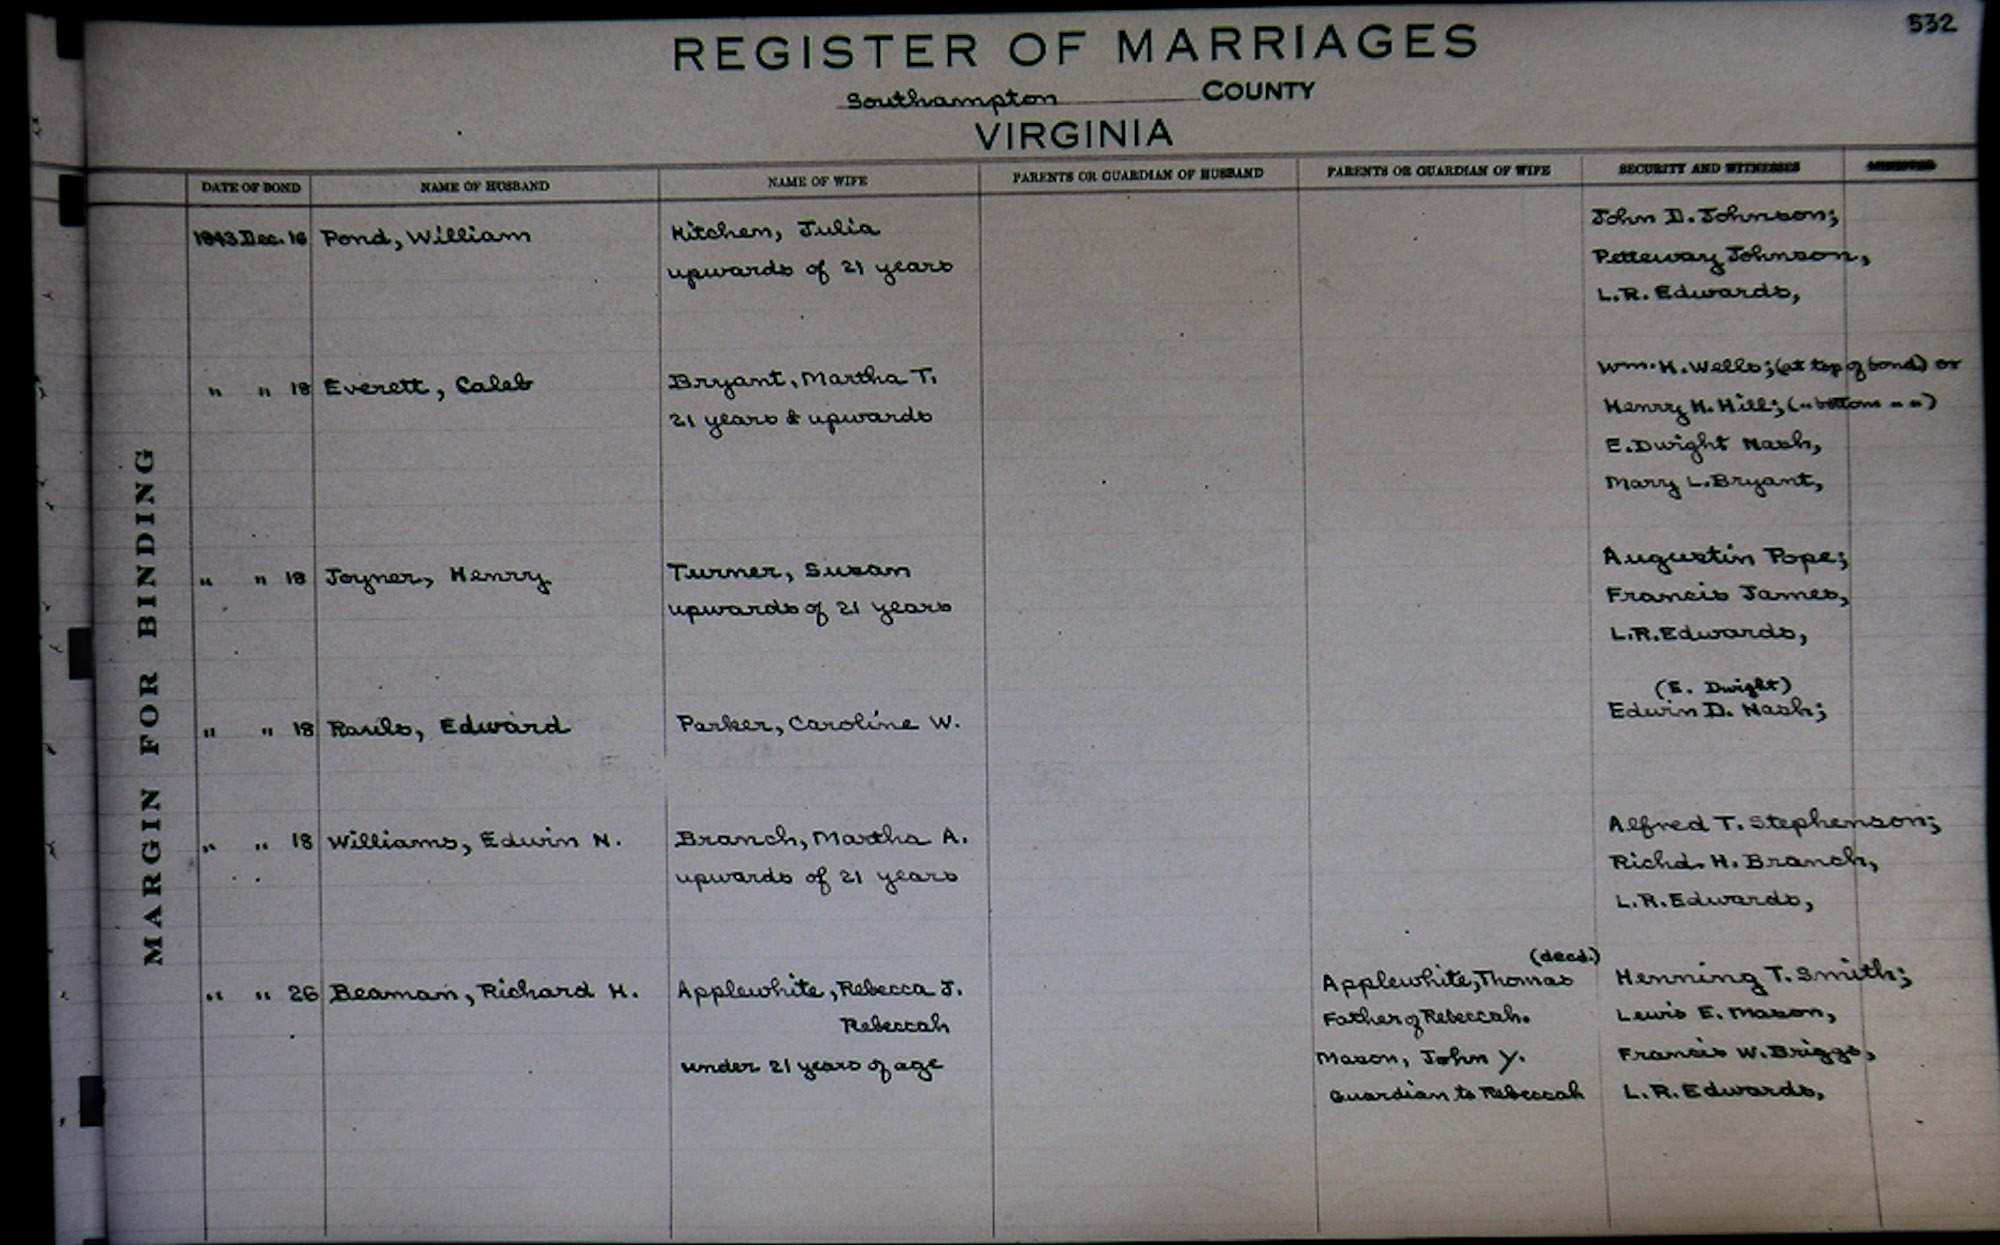 532
REGISTER OF MARRIAGES
Southampton COUNTY
VIRGINIA
DATE OF BOND NAME OF HUSBAND NAME OF WIFE PARENTS OR GUARDIAN OF HUSBAND PARENTS OR GUARDIAN OF WIFE SECURITY AND WITNESSES MINISTER
1843 Dec. 16 Pond, William Kitchen, Julia John D. Johnson;
upwards of 21 years Petteway Johnson,
L.R. Edwards,
" " 18 Everett, Caleb Bryant, Martha T. Wm. H. Wells; (at top of bond) or
21 years & upwards Henry H. Hill; (" bottom " ")
E. Dwight Nash,
Mary L. Bryant,
" " 18 Joyner, Henry Turner, Susan Augustin Pope;
upwards of 21 years Francis James,
L.R. Edwards,
(E. Dwight)
" " 18 Rauls, Edward Parker, Caroline W. Edwin D. Nash;
" " 18 Williams, Edwin N. Branch, Martha A. Alfred T. Stephenson;
upwards of 21 years Richd. H. Branch,
L.R. Edwards,
(decd.)
" " 26 Beaman, Richard H. Applewhite, Rebecca J. Applewhite, Thomas Henning T. Smith;
Rebeccah Father of Rebeccah. Lewis E. Mason,
under 21 years of age Mason, John Y. Francis W. Briggs,
Guardian to Rebeccah L.R. Edwards,
MARGIN FOR BINDING